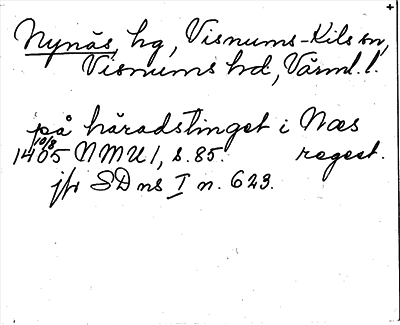 Nynäs, hg, Visnums-Kils sn,
Visnums hd, Värml. l.
på häradstinget i Næs
10/8
1405 NMU 1, s. 85. regest.
jfr SD ns I n. 623.